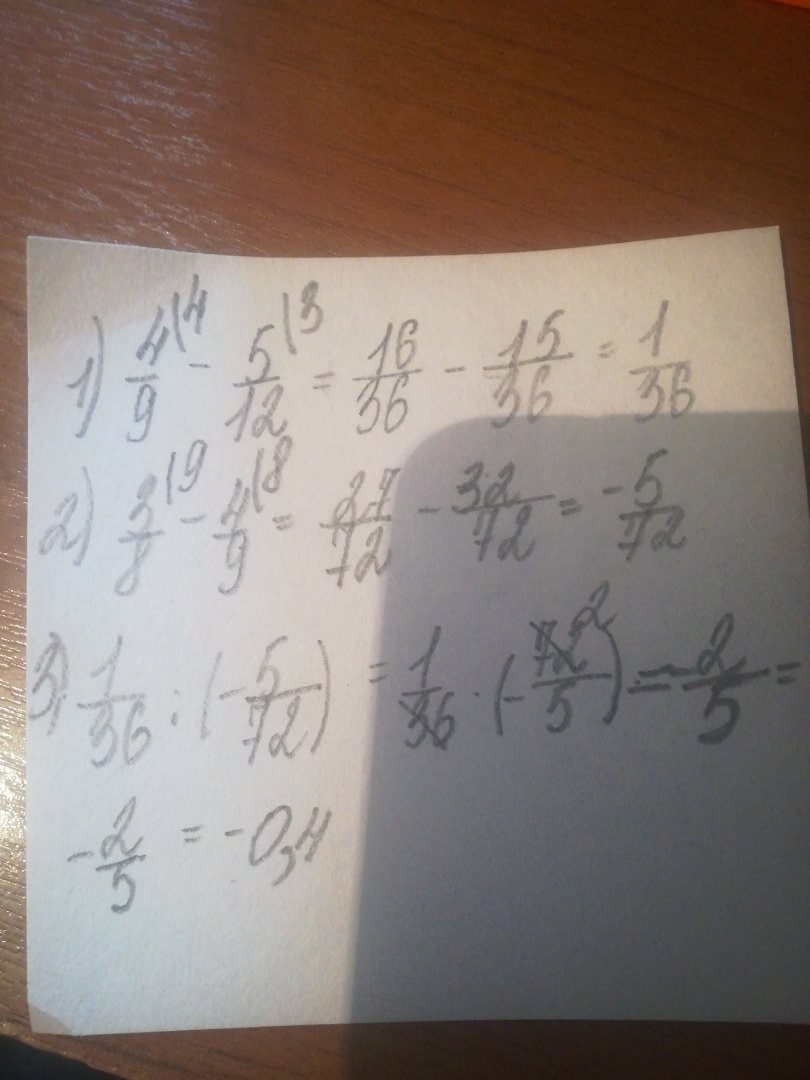 1) 4/9 |4 - 5/12 |3 = 16/36 - 15/36 = 1/36
2) 3/8 |9 - 4/9 |8 = 27/72 - 32/72 = -5/72
3) 1/36 : (-5/72) = 1/36 · (-72/5 2) = -2/5 =
-2/5 = -0,4